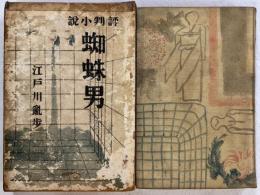 說小判評
蜘蛛男
江戸川亂步